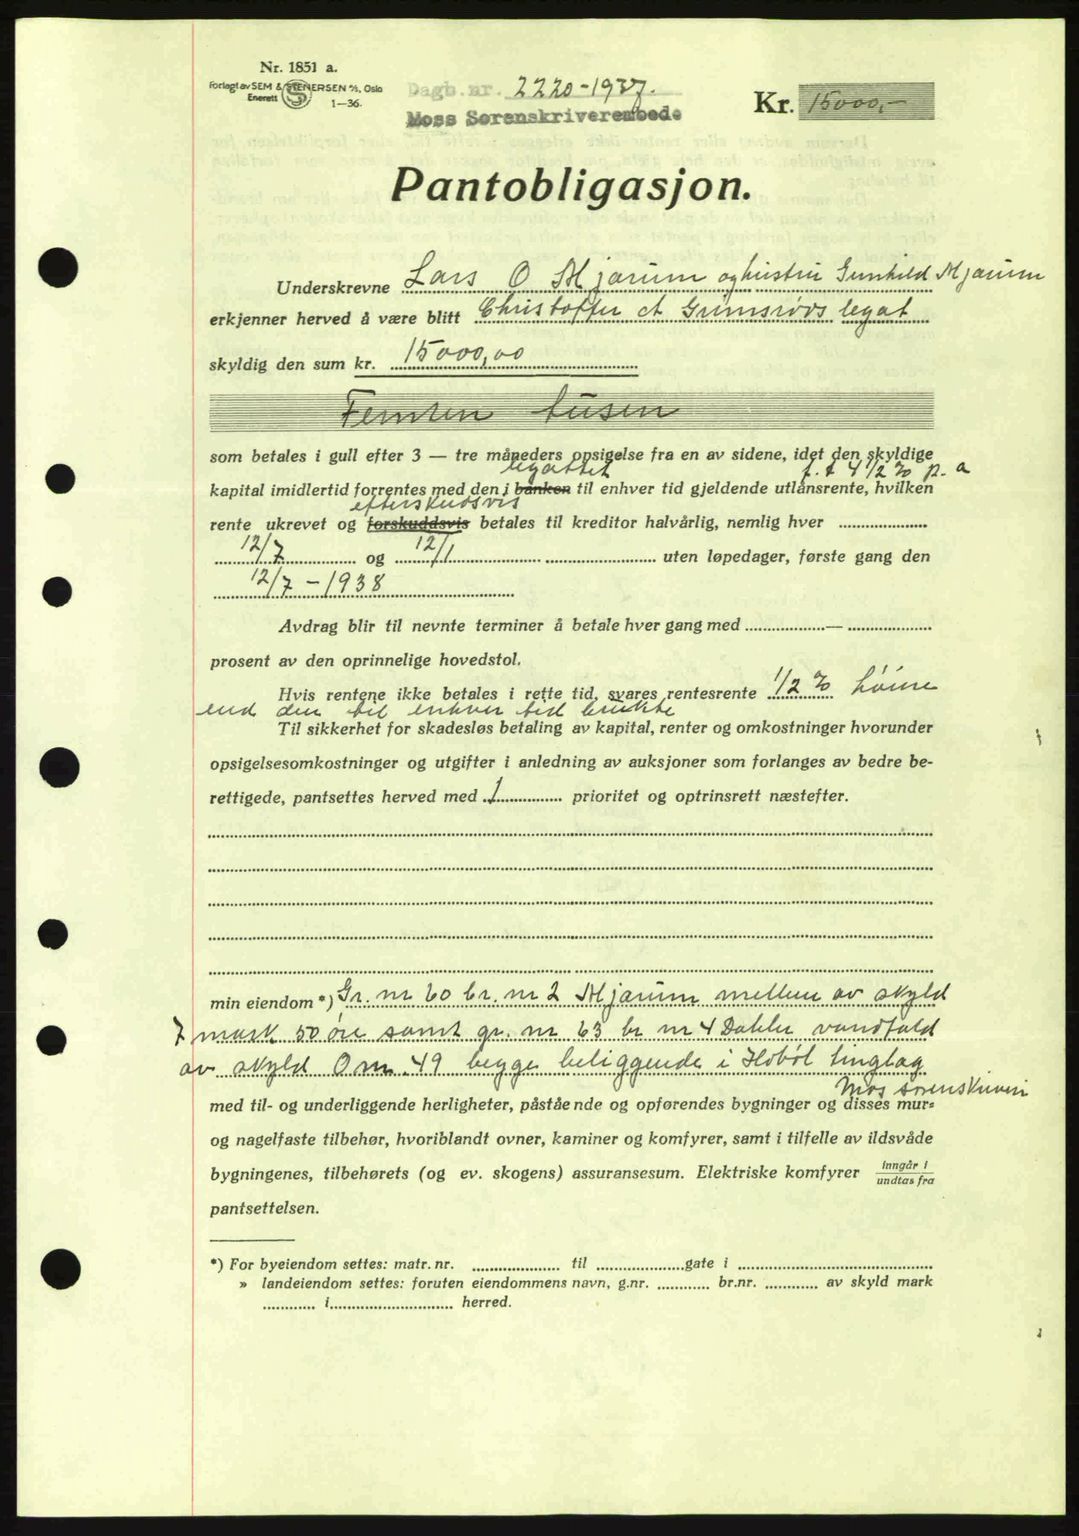 Nr. 1851 a.
Forlagt av SEM & STENERSEN A/S, Oslo
Enerett
1—36.
Dagb. nr. 2220-1937.
Moss Sorenskriverembede
Kr. 15000,-
Pantobligasjon.
Underskrevne Lars O Mjærum og hustru Gunhild Mjærum
erkjenner herved å være blitt Christoffer et Grimsrøds legat
skyldig den sum kr. 15000,00
Femten tusen
som betales i gull efter 3 — tre måneders opsigelse fra en av sidene, idet den skyldige
legattet f. t 4 1/2 % p. a
kapital imidlertid forrentes med den i banken til enhver tid gjeldende utlånsrente, hvilken
efterskudsvis
rente ukrevet og forskuddsvis betales til kreditor halvårlig, nemlig hver
12/7 og 12/1 uten løpedager, første gang den
12/7 - 1938
Avdrag blir til nevnte terminer å betale hver gang med —
prosent av den oprinnelige hovedstol.
Hvis rentene ikke betales i rette tid, svares rentesrente 1/2 % høiere
end den til enhver tid brukte
Til sikkerhet for skadesløs betaling av kapital, renter og omkostninger hvorunder
opsigelsesomkostninger og utgifter i anledning av auksjoner som forlanges av bedre be-
rettigede, pantsettes herved med 1 prioritet og optrinsrett næstefter.
min eiendom *) Gr. nr 60 br. nr 2 Mjærum mellem av skyld
7 mark 50 øre samt gr. nr 63 br nr 4 Dahler vandfald
av skyld 0 m. 49 begge beliggende i Hobøl tinglag
Mos sorenskriveri
med til- og underliggende herligheter, påstående og opførendes bygninger og disses mur-
og nagelfaste tilbehør, hvoriblandt ovner, kaminer og komfyrer, samt i tilfelle av ildsvåde
bygningenes, tilbehørets (og ev. skogens) assuransesum. Elektriske komfyrer inngår i
undtas fra
pantsettelsen.
*) For byeiendom settes: matr. nr. til gate i
» landeiendom settes: foruten eiendommens navn, g.nr. br.nr. av skyld mark
i herred.